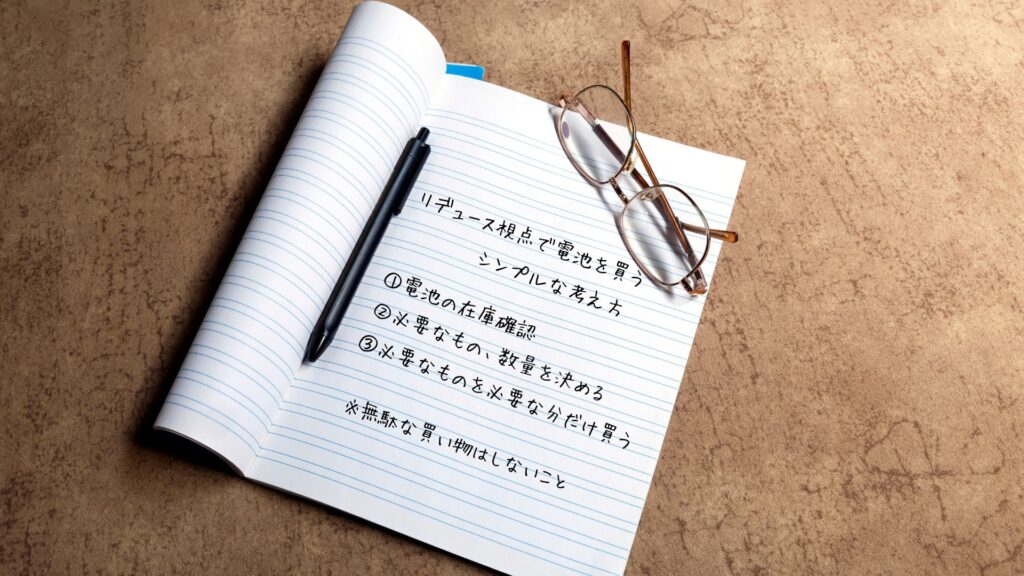 リデュース視点で電池を買う
シンプルな考え方
①電池の在庫確認
②必要なもの、数量を決める
③必要なものを必要な分だけ買う
※無駄な買い物はしないこと